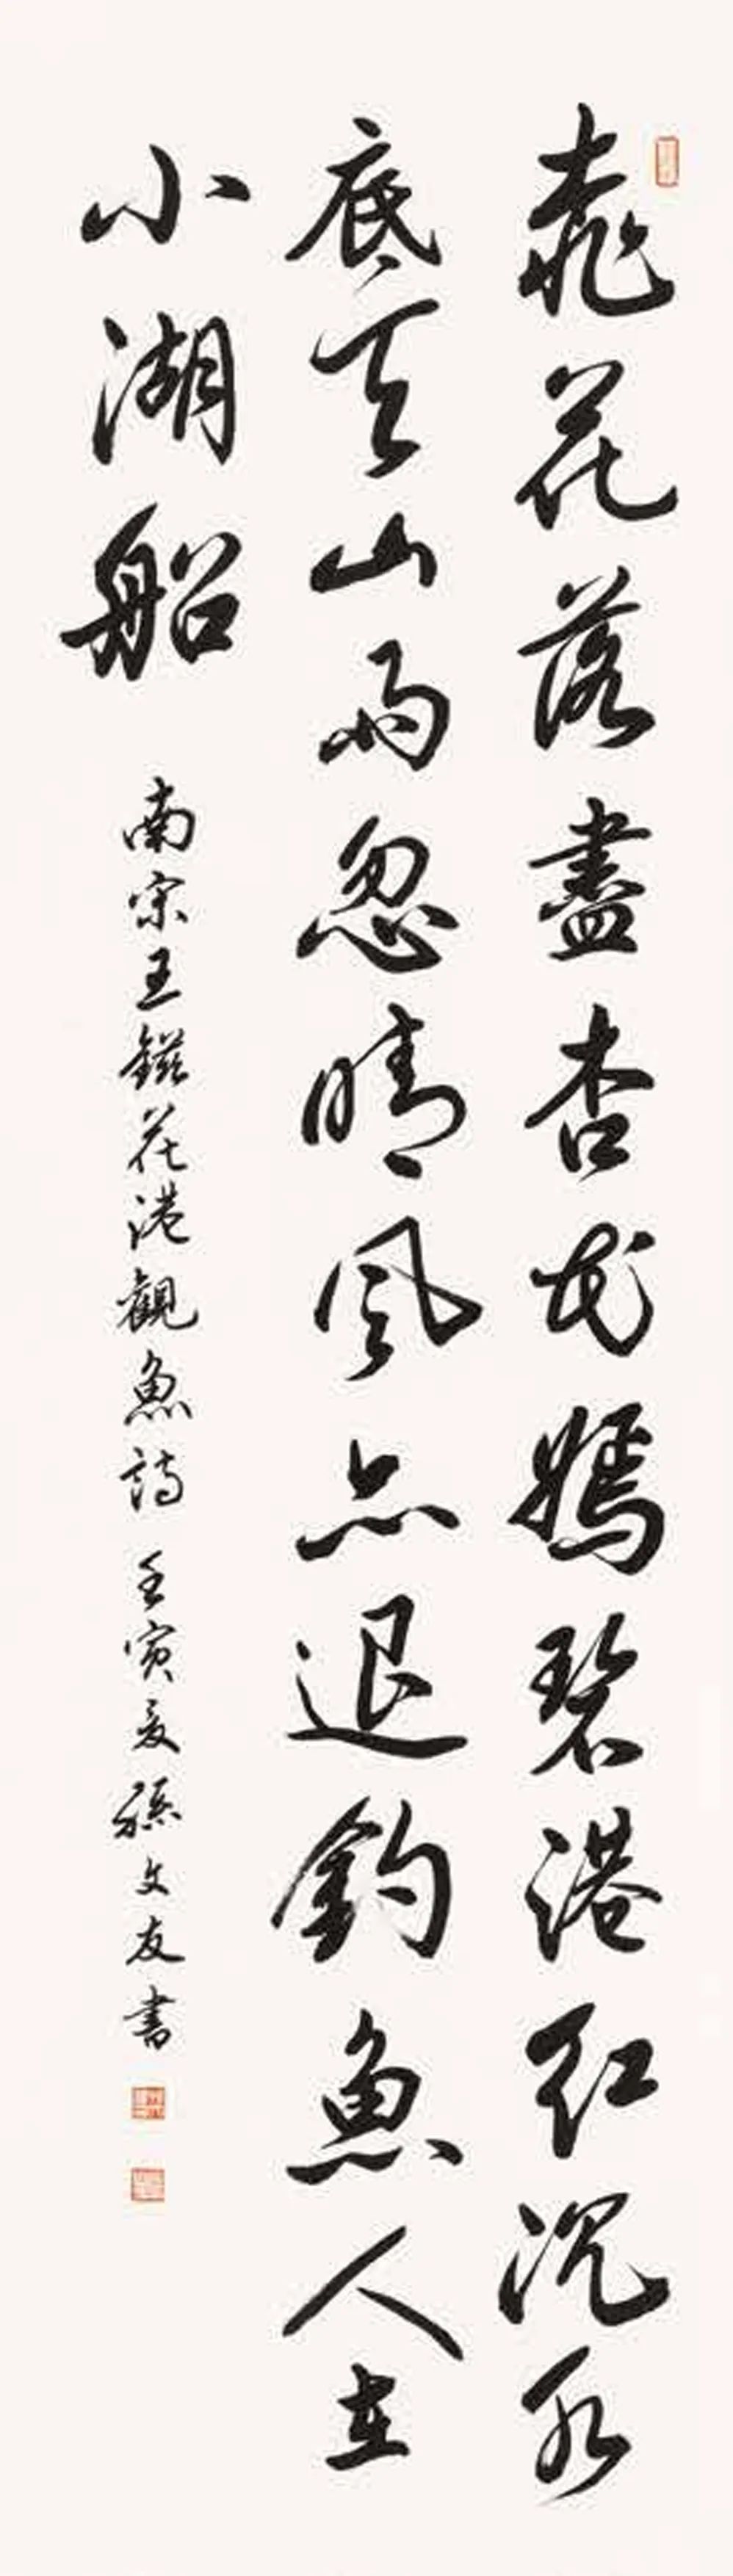 桃花落盡杏花嫣碧港紅沉水
底天山雨忽晴風亦退釣魚人在
小湖船 南宋王鎡花港觀魚詩 壬寅夏孫文友書